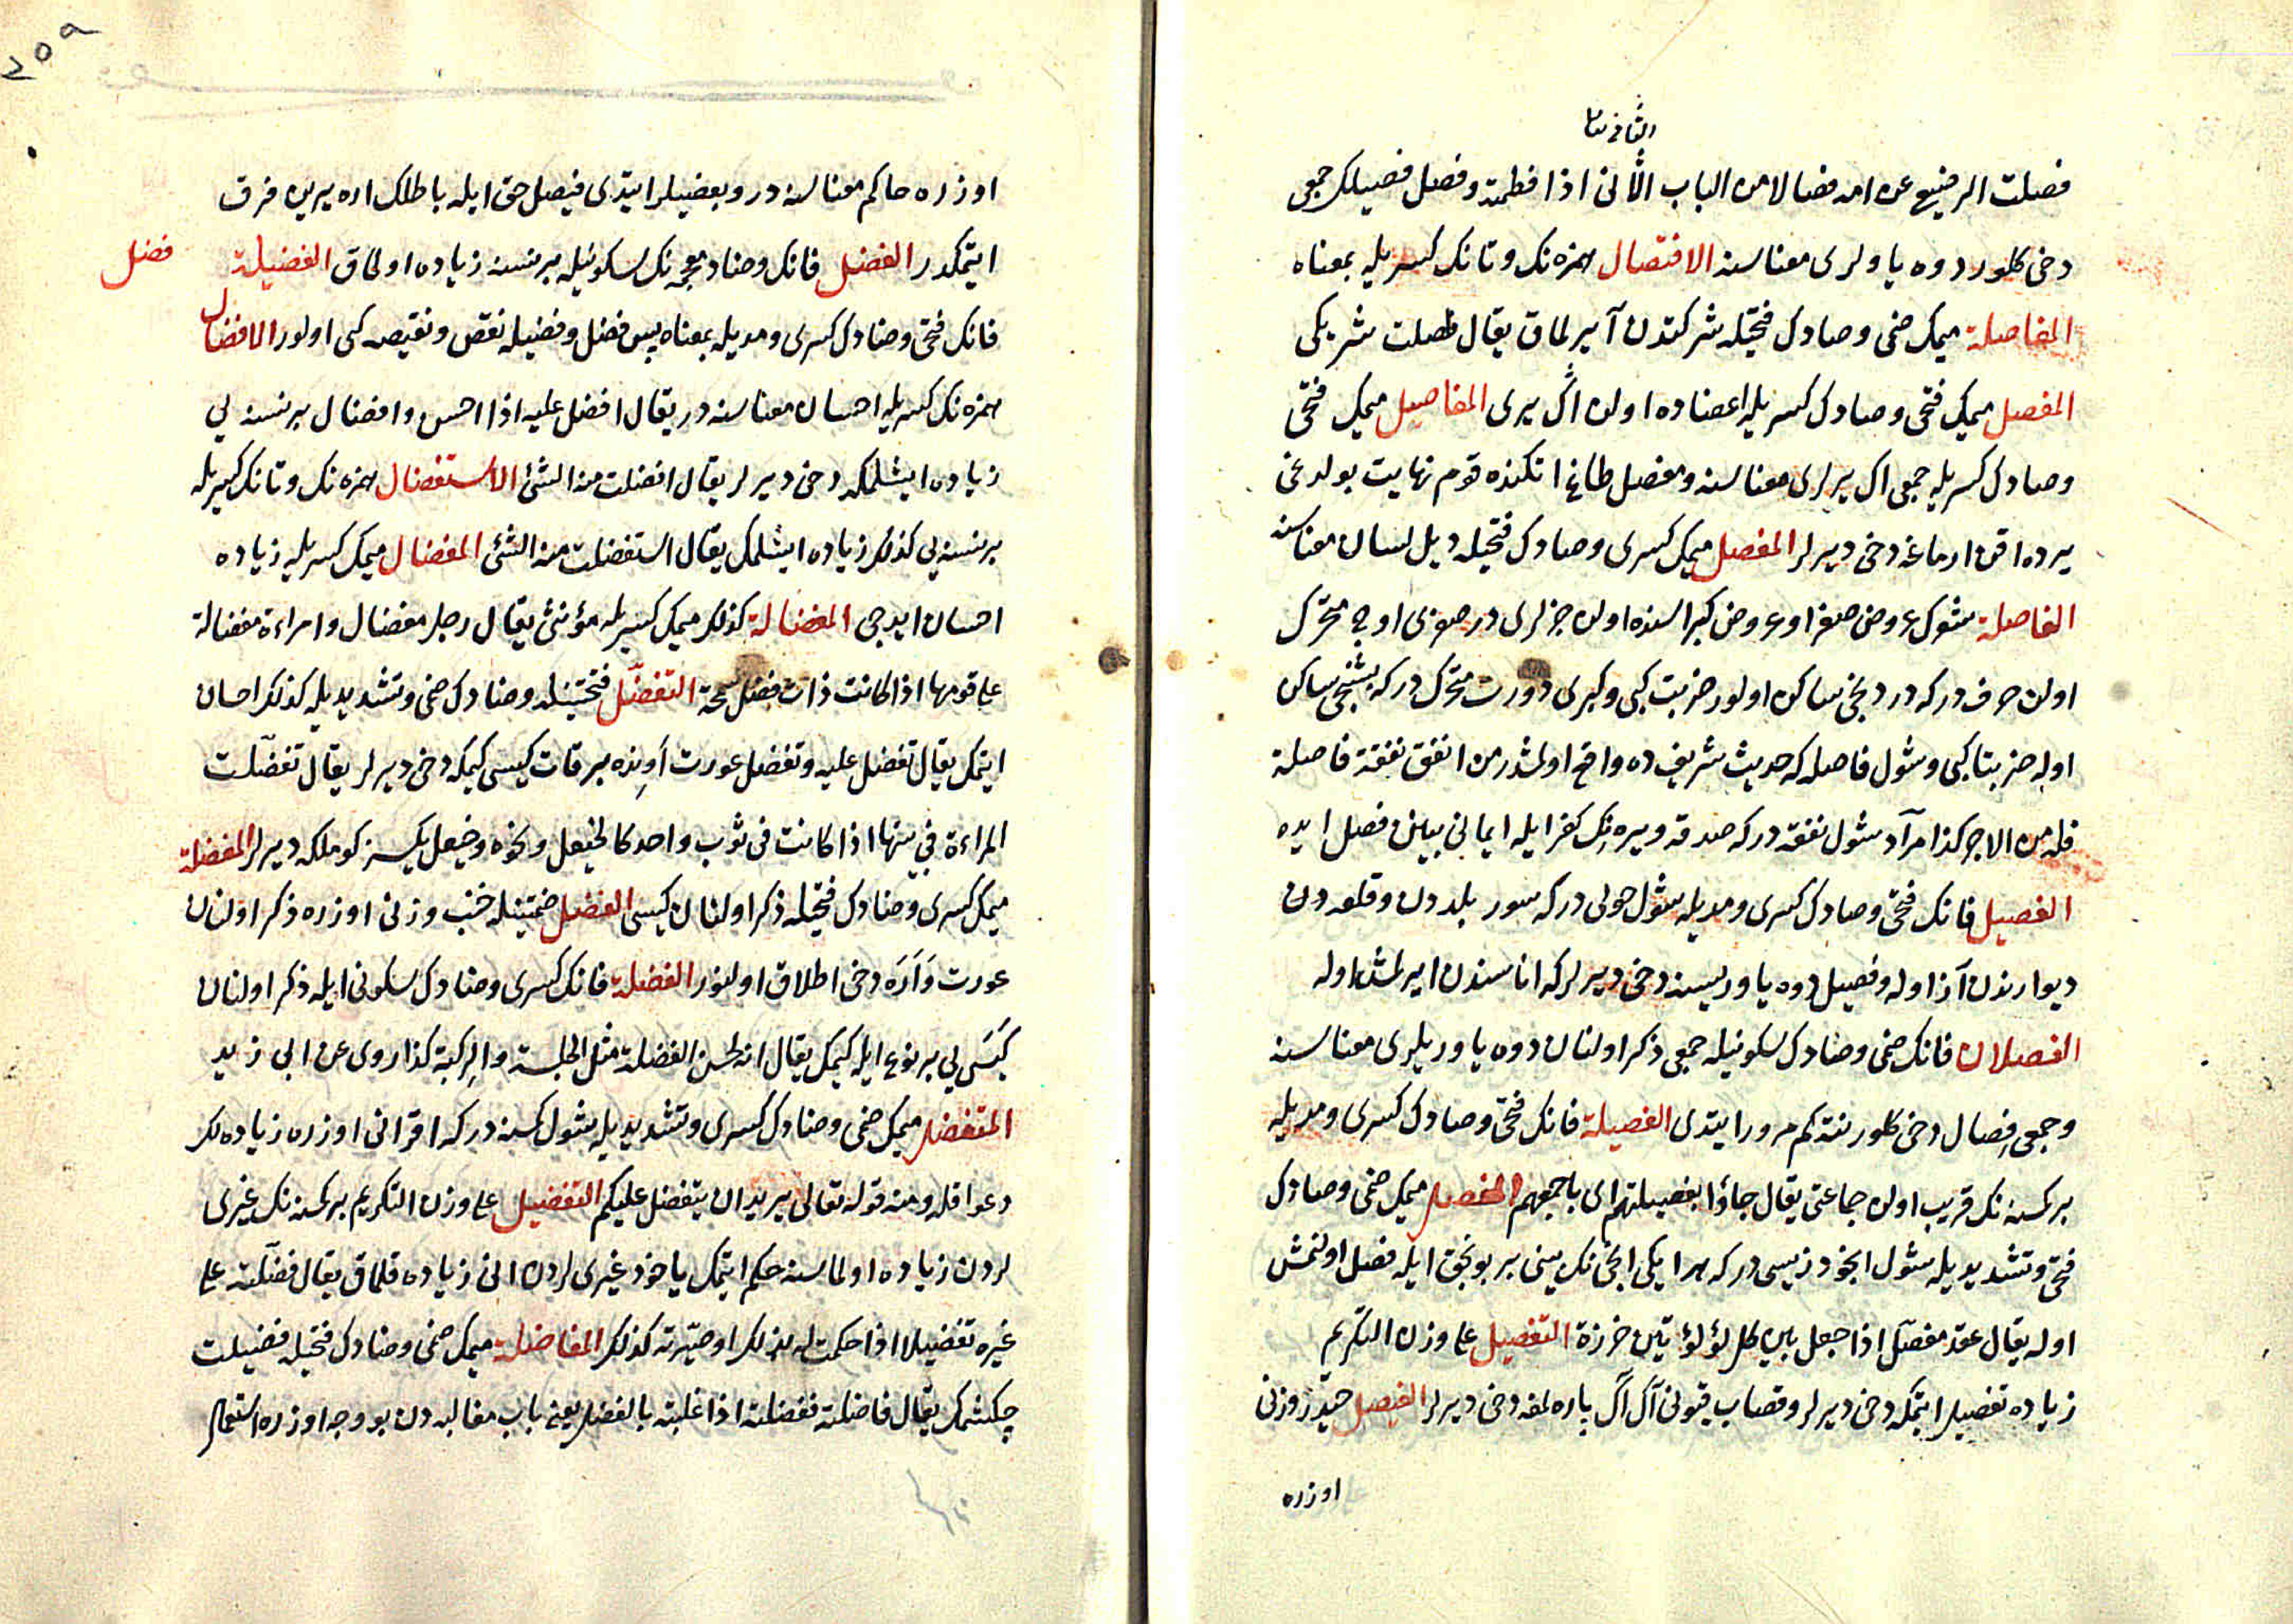 الثانى
فصلت الرضيع عن امه فصالا من الباب الثانى اذا فطمته وفصل فصيلك جمعى
دخى كلور دوه ياولرى معناسنه الافتصال همزه نك وتانك كسريله بمعناه
المفاصلة ميمك ضمى وصادك فتحيله شركتدن آيرلماق يقال فاصلت شريكى
المفصل ميمك فتحى وصادك كسريله اعضاده اولن اك يرى المفاصيل ميمك فتحى
وصادك كسريله جمعى اك يرلرى معناسنه ومفصل طاغ اتكنده قوم نهايت بولدغى
يرده اقن ارماغه دخى ديرلر المفصل ميمك كسرى وصادك فتحيله ديل لسان معناسنه
الفاصلة شول عروض صغرا وعروض كبراسنده اولن جزلرى در صغرى اوچ متحرك
اولن حرف دركه دردنجى ساكن اولور ضربت كبى وكبرى دورت متحرك دركه بشنجى ساكن
اوله ضربتا كبى وشول فاصله كه حديث شريف ده واقع اولمشدر من انفق نفقة فاصلة
فله من الاجر كذا مرآد شول نفقه دركه صدقه ويره نك كفر ايله ايمانى بينن فصل ايده
الفصيل فانك فتحى وصادك كسرى ومديله شول حولى دركه سور بلددن وقلعه دن
ديوارندن آز اوله وفصيل دوه ياوريسنه دخى ديرلركه اناسندن ايرلمش اوله
الفصلان فانك ضمى وصادك سكونيله جمعى ذكر اولنان دوه ياوريلرى معناسنه
وجمعى فصال دخى كلور نته كم مرور ايتدى الفصيلة فانك فتحى وصادك كسرى ومديله
بركسنه نك قريب اولن جماعتى يقال جاؤا بفصيلتهم اى باجمعهم المفصل ميمك ضمى وصادك
فتحى وتشديديله شول انجو ديزيسى دركه هر ايكى انجى نك بينى بر بونجق ايله فصل اولنمش
اوله يقال عقد مفصّل اذا جعل بين كل لؤلؤتين خرزة التفصيل على وزن التكريم
زياده تفصيل ايتمكه دخى ديرلر وقصاب قيونى آك آك پاره لمغه دخى ديرلر الفيصل حيدر وزنى
اوزره
اوزره حاكم معناسنه در وبعضيلر ايتدى فيصل حق ايله باطلك اره يرين فرق
ايتمكدر الفضل فانك وضاد معجمه نك سكونيله برنسنه زياده اولماق الفضيلة
فضل
فانك فتحى وضادك كسرى ومديله بمعناه پس فضل وفضيله نقص ونقيصه كبى اولور الافضال
همزه نك كسريله احسان معناسنه در يقال افضل عليه اذا احسن وافضال برنسنه يى
زياده ايشلمكه دخى ديرلر يقال افضلت منه الشئ الاستفضال همزه نك وتانك كسريله
برنسنه يى كذلك زياده ايشلمك يقال استفضلت منه الشئ المفضال ميمك كسريله زياده
احسان ايدجى المفضالة كذلك ميمك كسريله مؤنثى يقال رجل مفضال وامراءة مفضالة
على قومها اذا كانت ذات فضل سمحة التفضّل فتحتينله وضادك ضمى وتشديديله كذلك احسان
ايتمك يقال تفضل عليه وتفضل عورت اونده برقات كيسى كيمكه دخى ديرلر يقال تفضّلت
المراءة فى بيتها اذا كانت فى ثوب واحد كالخيعل ونحوه وخيعل يكسز كوملكه ديرلر المفضلة
ميمك كسرى وضادك فتحيله ذكر اولنان كيسى الفضل ضمتينله جنب وزنى اوزره ذكر اولنان
عورت وَاَرَه دخى اطلاق اولنور الفضلة فانك كسرى وضادك سكونى ايله ذكر اولنان
كيسى يى بر نوع ايله كيمك يقال انه لحسن الفضلة مثل الجلسة والركبة كذا روى عن ابى زيد
المتفضل ميمك ضمى وضادك كسرى وتشديديله شول كمسنه دركه اقرانى اوزره زياده لك
دعوا قله ومنه قوله تعالى يريد ان يتفضل عليكم التفضيل على وزن التكريم بركمسنه نك غيرى
لردن زياده اولماسنه حكم ايتمك ياخود غيرى لردن انى زياده قلماق يقال فضّلته على
غيره تفضيلا اذا حكمت له بذلك او صيّرته كذلك المفاضلة ميمك ضمى وضادك فتحيله فضيلت
چكشمك يقال فاضلته ففضلته اذا غلبته بالفضل يعنى باب مغالبه دن بو وجه اوزره استعمال